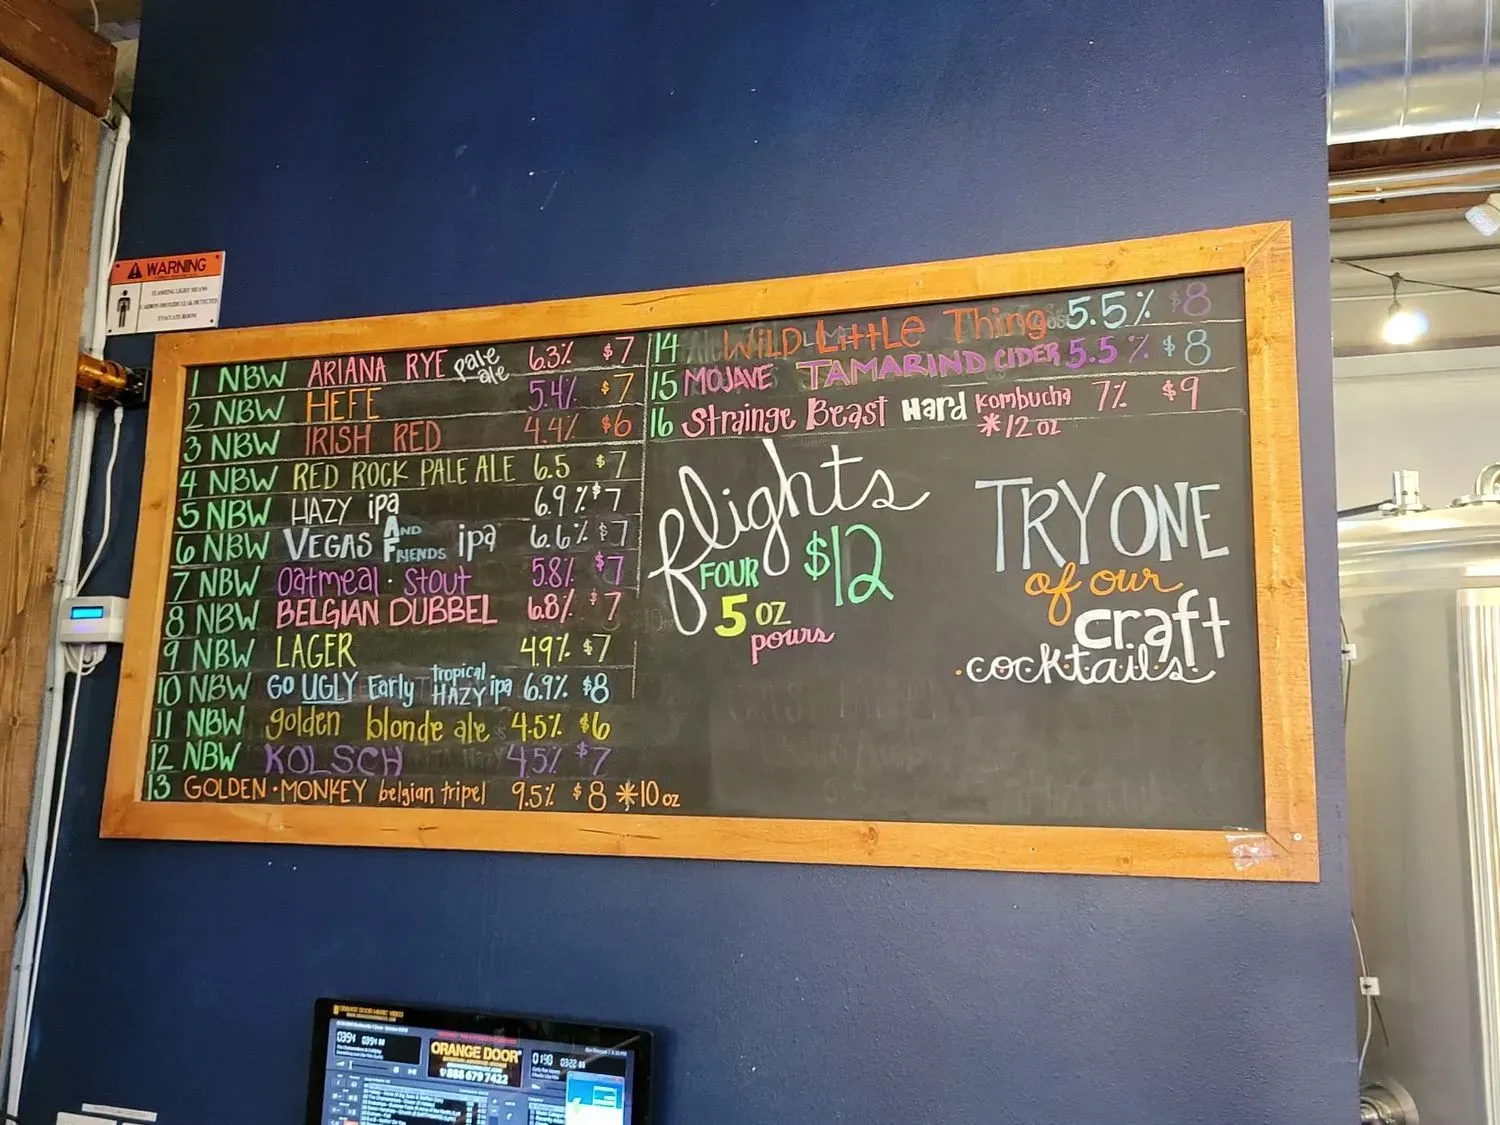 WARNING
FLASHING LIGHT MEANS
CARBON DIOXIDE LEAK DETECTED
EVACUATE ROOM
1 NBW ARIANA RYE pale ale 6.3% $7
2 NBW HEFE 5.4% $7
3 NBW IRISH RED 4.4% $6
4 NBW RED ROCK PALE ALE 6.5 $7
5 NBW HAZY ipa 6.9% $7
6 NBW VEGAS AND FRIENDS ipa 6.6% $7
7 NBW Oatmeal · stout 5.8% $7
8 NBW BELGIAN DUBBEL 6.8% $7
9 NBW LAGER 4.9% $7
10 NBW GO UGLY Early tropical HAZY ipa 6.9% $8
11 NBW golden blonde ale 4.5% $6
12 NBW KOLSCH 4.5% $7
13 GOLDEN · MONKEY belgian tripel 9.5% $8 *10 oz
14 WILD Little Thing 5.5% $8
15 MOJAVE TAMARIND CIDER 5.5% $8
16 Strainge Beast Hard Kombucha 7% $9
*12 oz
flights
FOUR $12
5 oz
pours
TRY ONE
of our
craft
cocktails
ORANGE DOOR MUSIC VIDEO
ORANGE DOOR
1 888 679 7422